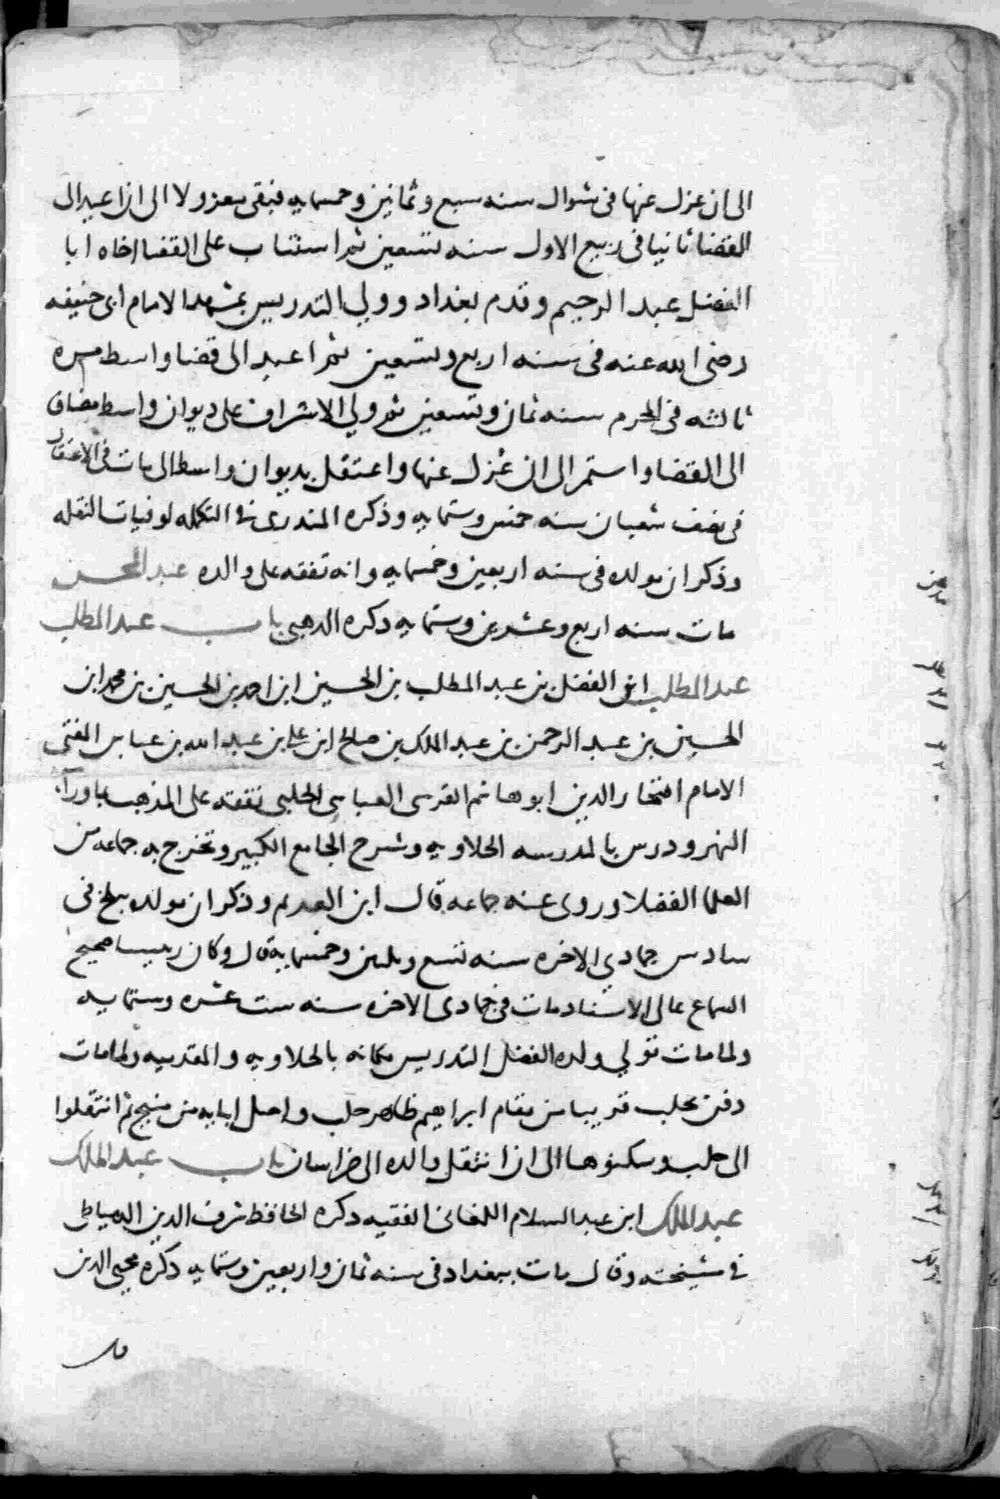 الى ان عزل عنها فى شوال سنه سبع وثمانين وخمسمايه فبقى معزولا الى ان اعيد الى
القضا ثانيا فى ربيع الاول سنه تسعين ثم استناب على القضا اخاه ابا
الفضل عبد الرحيم وقدم بغداد وولي التدريس بمشهد الامام ابى حنيفه
رضى الله عنه فى سنه اربع وتسعين ثم اعيد الى قضا واسط مره
ثالثه فى المحرم سنه ثمان وتسعين ثم ولي الاشراف على ديوان واسط مضاف
الى القضا واستمر الى ان عزل عنها واعتقل بديوان واسط الى مات فى الاعتقال
فى نصف شعبان سنه خمس وستمايه وذكره المندرى فى التكمله لوفيات النقله
وذكر ان مولده فى سنه اربعين وخمسمايه وانه تفقه على والده عبد المحسن
مات سنه اربع وعشرين وستمايه ذكره الدهبى باب عبد المطلب
عبد المطلب ابن الفضل بن عبد المطلب بن الحسين ابن احمد بن الحسين بن محمد ابن
الحسين بن عبد الرحمن بن عبد الملك بن صالح ابن على بن عبد الله بن عباس المفتى
الامام افتخار الدين ابو هاشم القرشى العباسى الحلبى تفقه على المذهب بما ورآء
النهر ودرس بالمدرسه الحلاويه وشرح الجامع الكبير وتخرج به جماعه من
العلما الفضلا وروى عنه جماعه قال ابن العديم وذكر ان مولده ببلخ فى
سادس جمادي الاخره سنه تسع وثلثين وخمسمايه قال وكان رييسا صحيح
السماع عالى الاسناد مات فى جمادى الاخره سنه ست عشره وستمايه
ولما مات تولي ولده الفضل التدريس مكانه بالحلاويه والمقدميه ولما مات
دفن بحلب قريبا من مقام ابراهيم ظاهر حلب واصل ابايه من منبج ثم انتقلوا
الى حلب وسكنوها الى ان انتقل والده الى خراسان باب عبد الملك
عبد الملك ابن عبد السلام اللمغانى الفقيه ذكره الحافظ شرف الدين الدمياطى
فى مشيخته وقال مات ببغداد فى سنه ثمان واربعين وستمايه ذكره محيى الدين